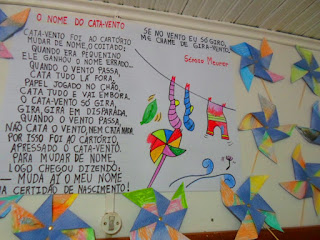 O NOME DO CATA-VENTO
CATA-VENTO FOI AO CARTÓRIO
MUDAR DE NOME, O COITADO;
QUANDO ERA PEQUENINO
ELE GANHOU O NOME ERRADO...
QUANDO O VENTO PASSA,
CATA TUDO LÁ FORA,
PAPEL JOGADO NO CHÃO,
CATA TUDO E VAI EMBORA.
O CATA-VENTO SÓ GIRA,
GIRA, GIRA EM DISPARADA.
QUANDO O VENTO PASSA,
NÃO CATA O VENTO, NEM CATA NADA.
POR ISSO FOI AO CARTÓRIO
APRESSADO O CATA-VENTO.
PARA MUDAR DE NOME,
LOGO CHEGOU DIZENDO:
— MUDA AÍ O MEU NOME
NA CERTIDÃO DE NASCIMENTO!
SE NO VENTO EU SÓ GIRO,
ME CHAME DE GIRA-VENTO!